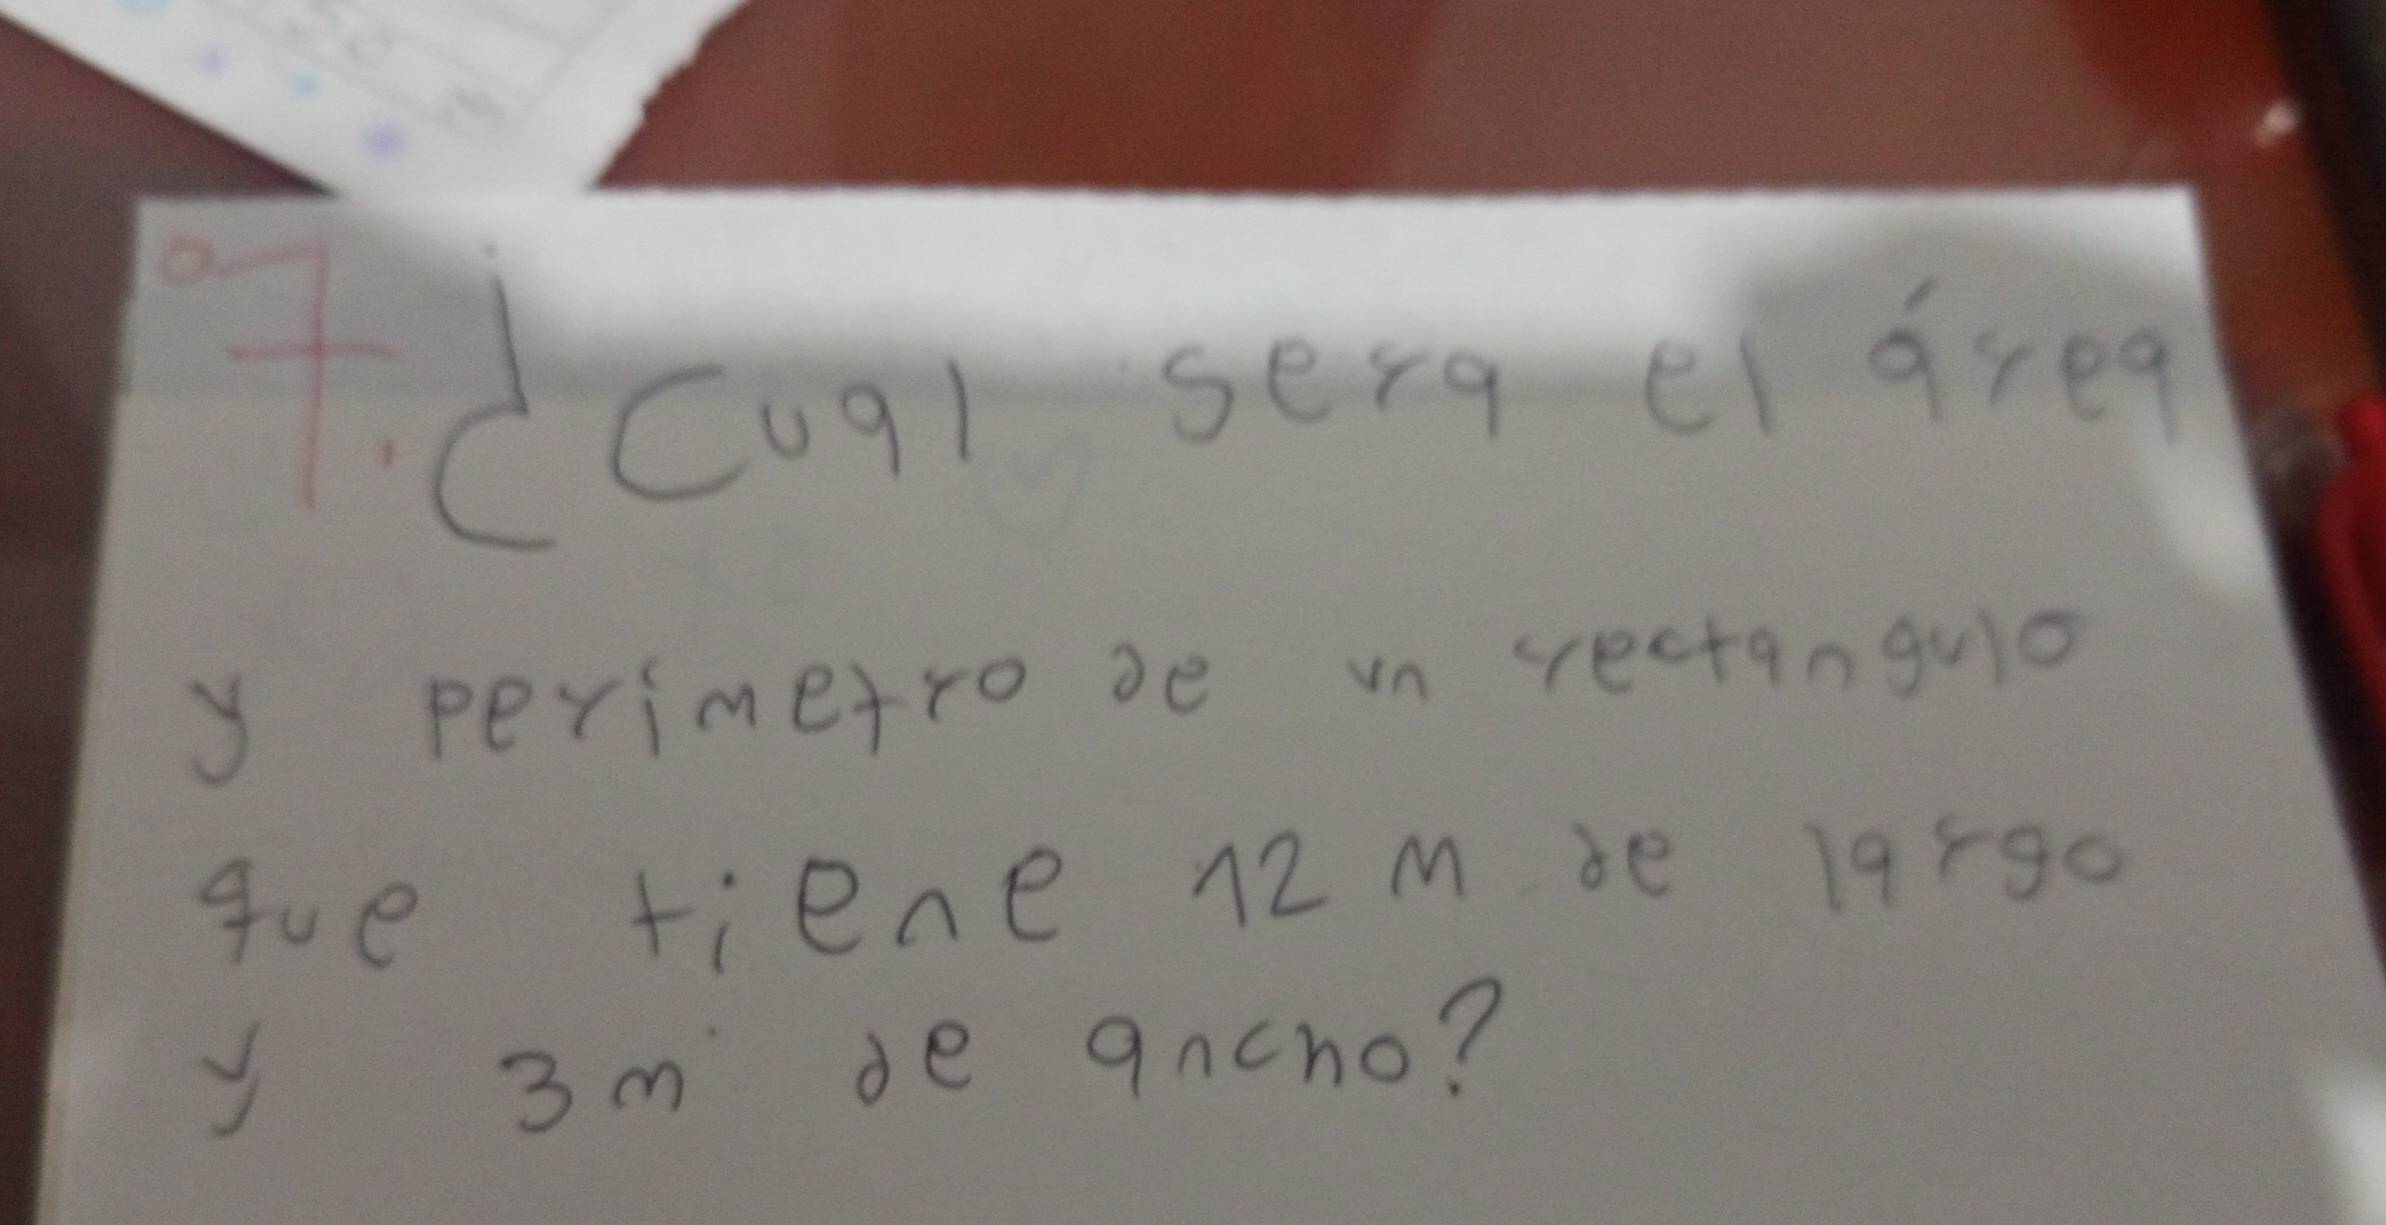 7. ¿Cual sera el área
y perímetro de un rectangulo
que tiene 12 m de largo
y 3m de ancho?